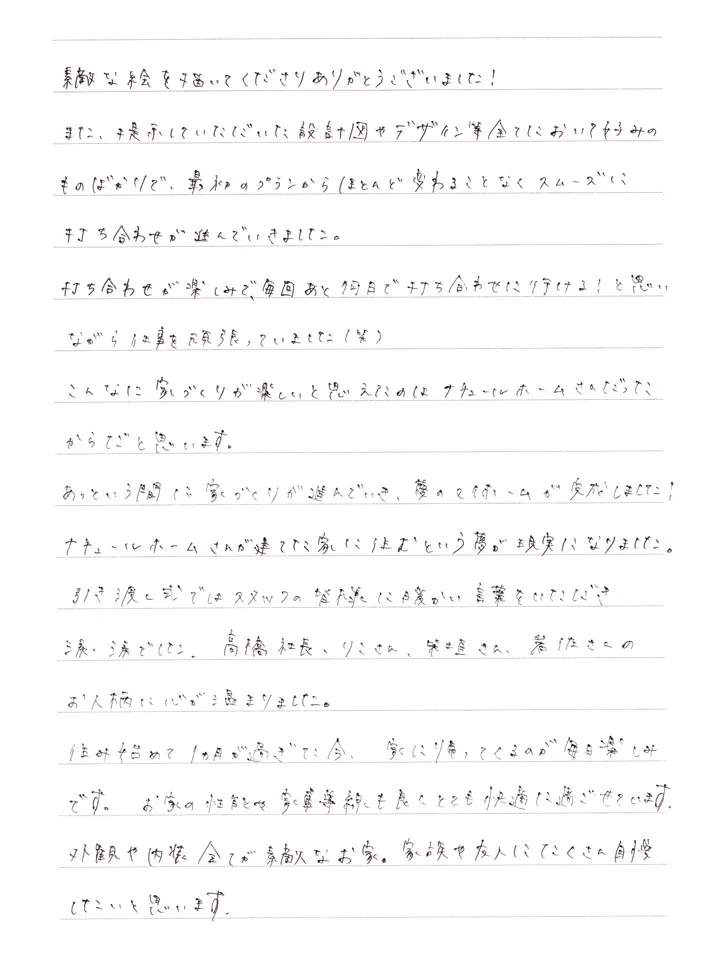 素敵な絵を描いてくださりありがとうございました!
また、提示していただいた設計図やデザイン等全てにおいて好みの
ものばかりで、最初のプランからほとんど変わることなくスムーズに
打ち合わせが進んでいきました。
打ち合わせが楽しみで、毎回あと何日で打ち合わせに行ける!と思い
ながら仕事を頑張っていました(笑)
こんなに家づくりが楽しいと思えたのはナチュールホームさんだった
からだと思います。
あっという間に家づくりが進んでいき、夢のマイホームが完成しました!
ナチュールホームさんが建てた家に住むという夢が現実になりました。
引き渡し式ではスタッフの皆様に暖かい言葉をいただき
涙、涙でした。高橋社長、りこさん、さん、岩佐さんの
お人柄に心が温まりました。
住み始めて1ヵ月が過ぎた今、家に帰ってくるのが毎日楽しみ
です。お家の性能や家事導線も良くとても快適に過ごせています。
外観や内装全てが素敵なお家。家族や友人にたくさん自慢
したいと思います。